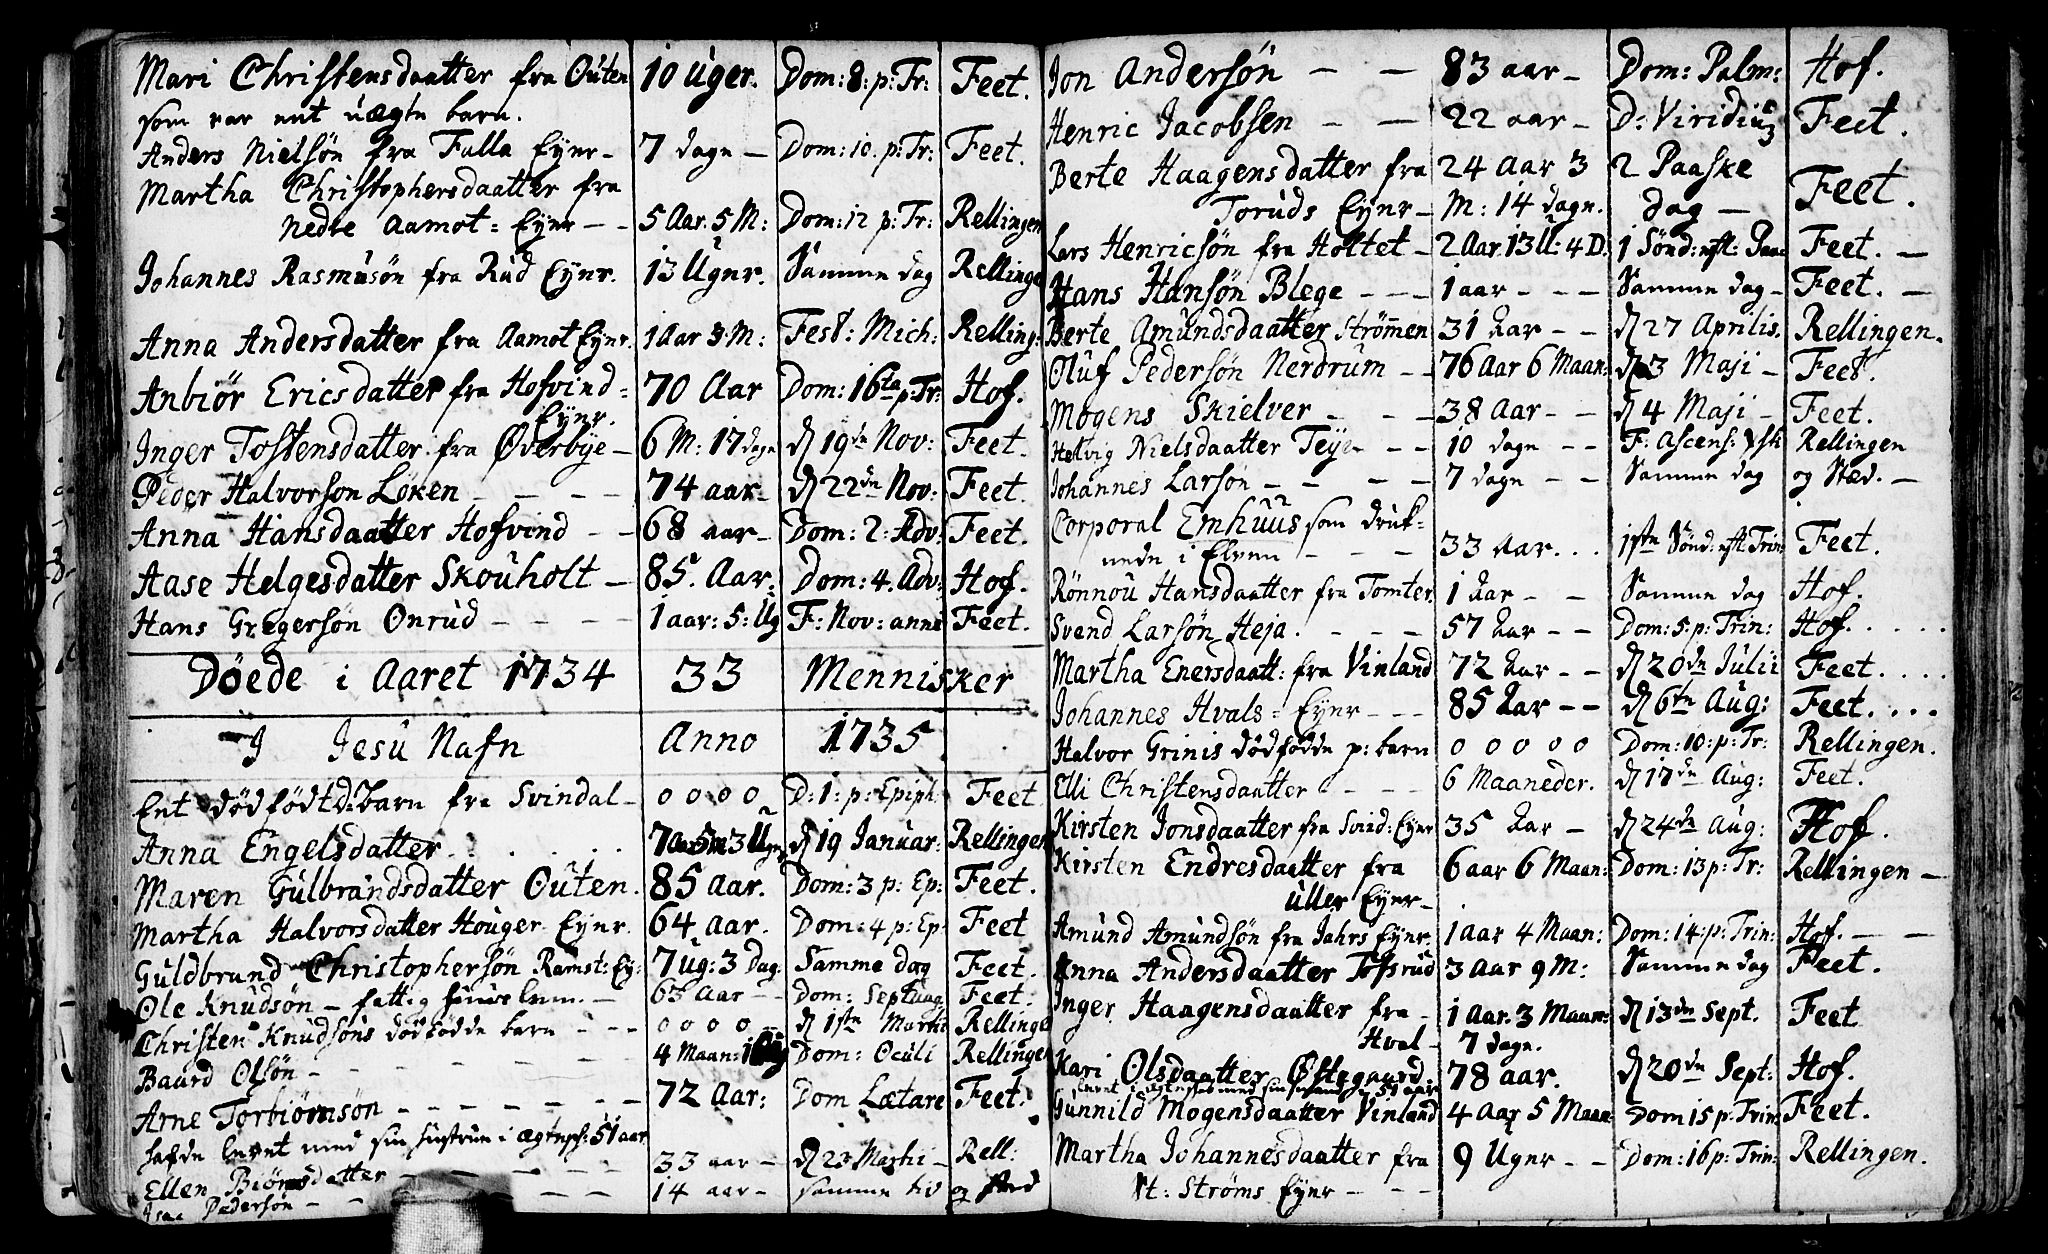 Mari Christensdaatter fra Outen 10 Uger. Dom: 8: p: Tr: Feet.
som var ent uægte barn.
Anders Nielsön fra Falla Eyer- 7 dage - Dom: 10. p: Tr: Feet.
Martha Christophersdaatter fra
Nedre Aamot = Eyer - - 5 Aar. 5 M: Dom: 12 p: Tr: Rellingen
Johannes Rasmusön fra Rud Eyer. 13 Uger. Samme dag Rellinge
Anna Andersdatter fra Aamot Eyer. 1 Aar 3 M: Fest: Mich: Relling:
Anbiör Ericsdatter fra Hofvind= 70 Aar Dom: 16ta p: Tr: Hof.
Eyer.
Inger Tostensdatter fra Øverbye - 6 M: 17 dage d 19de Nov: Feet.
Peder Halvorson Löken - - - - 74 aar - d 22de Nov: Feet.
Anna Hansdaatter Hofvind - - 68 aar - Dom: 2: Adv: Feet.
Aase Helgesdatter Skouholt - 85. Aar. Dom: 4. Adv: Hof.
Hans Gregersön Onrud - - - - 1 aar: 5: Ug F: Nov: anni Feet.
Döede i Aaret 1734 33 Mennisker
I Jesu Nafn Anno 1735
Ent dödfödt barn fra Svindal - 0 0 0 0 D: 1: p: Epiph: Feet
Anna Engelsdatter . . . . 7 Aar 5 M 3 Uger d 19 Januar: Rellingen
Maren Gulbrandsdatter Outen. 85 aar. Dom: 3 p: Ep: Feet.
Martha Halvorsdatter Houger Eyer. 64 aar. Dom: 4 p: Ep: Feet
Guldbrand Christophersön Ramst: Ey: 7 ug: 3 Dag: Samme dag Feet.
Ole Knudsön - fattig huus lem. - 63 aar - - Dom: Septuag Feet.
Christen Knudsöns dödfödde barn - - - 0 0 0 0 d 1ste Martii Rellinge
Baard Olsön - - - - - 4 Maan: Dom: Oculi Rellingen
Arne Torbiörnsön - - - - - - 72 Aar: Dom Lætare Feet.
hafde levet med sin hustrue i ægtesk: 51 aar
Ellen Biörnsdatter - - - - - 33 aar - d 23 Martii - Rell:
Pedersön - - - - 14 aar - samme tid og sted
Jon Andersön - - 83 aar - Dom: Palm: Hof.
Henric Jacobsen - - 22 aar - D: Viridium Feet.
Berte Haagensdatter fra 24 Aar 3 2 Paaske
Toruds Eyer - M: 14 dage. dag - Feet.
Lars Henricsön fra Holtet - 2 Aar. 13 U: 4 D. 1 Sönd: eft: Paa Feet. -
Hans Hansön Blege - - - 1 aar - - - Samme dag - Feet. -
Berte Amundsdaatter Strömmen 31 Aar - - d 27 Aprilis. Rellingen.
Oluf Pedersön Nerdrum - - 76 Aar 6 Maan: d 3 Maji - Feet.
Mogens Skielver - - - 38 Aar - - d 4 Maji - Feet.
Helvig Nielsdaatter Teye - - - 10 dage - - F: Ascens: Rellingen
Johannes Larsön - - - - 7 dage - - Samme dag og Sted. -
Corporal Emhuus som druk=
nede i Elven - - - 33 Aar. . . 1ste Sönd: eft: Trin: Feet.
Rönnou Hansdaatter fra Tomter. 1 Aar - - Samme dag Hof.
Svend Larsön Heja. - - - - 57 Aar - - Dom: 5: p: Trin: Hof. . . . .
Martha Enersdaatt: fra Vinland 72 Aar - - d 20de Julii Feet. . . .
Johannes Hvals = Eyer - - - 85 Aar - - d 6te Aug: Feet. . . .
Halvor Grinis dödfödde p: barn 0 0 0 0 0 Dom: 10: p: Tr: Rellingen.
Elli Christensdaatter - - - - 6 Maaneder. d 17de Aug: Feet.
Kirsten Jonsdaatter fra Svind: Eyer 35 Aar - d 24de Aug: Hof.
Kirsten Endresdaatter fra 6 aar 6 Maan: Dom: 13 p: Tr: Rellingen -
Uller Eyer -
Amund Amundsön fra Jahrs Eyer. 1 aar 4 Maan: Dom: 14: p: Trin: Hof. - -
Anna Andersdaatter Tofsrud 3 Aar 9 M: Samme dag Feet.
Inger Haagensdaatter fra - 1 Aar. 3 Maan: d 13de Sept. Feet
Hval - 7 dage.
Kari Olsdaatter Østegaard 78 aar. d 20de Sept: Hof.
levet i ægteskab med sin 51 aar
Gunnild Mogensdaatter Vinland 4 Aar 5 Maan Dom 15 p: Trin: Feet.
Martha Johannesdaatter fra 9 Uger - - Dom: 16 p: Trin: Rellingen.
st: Ströms Eyer - - -